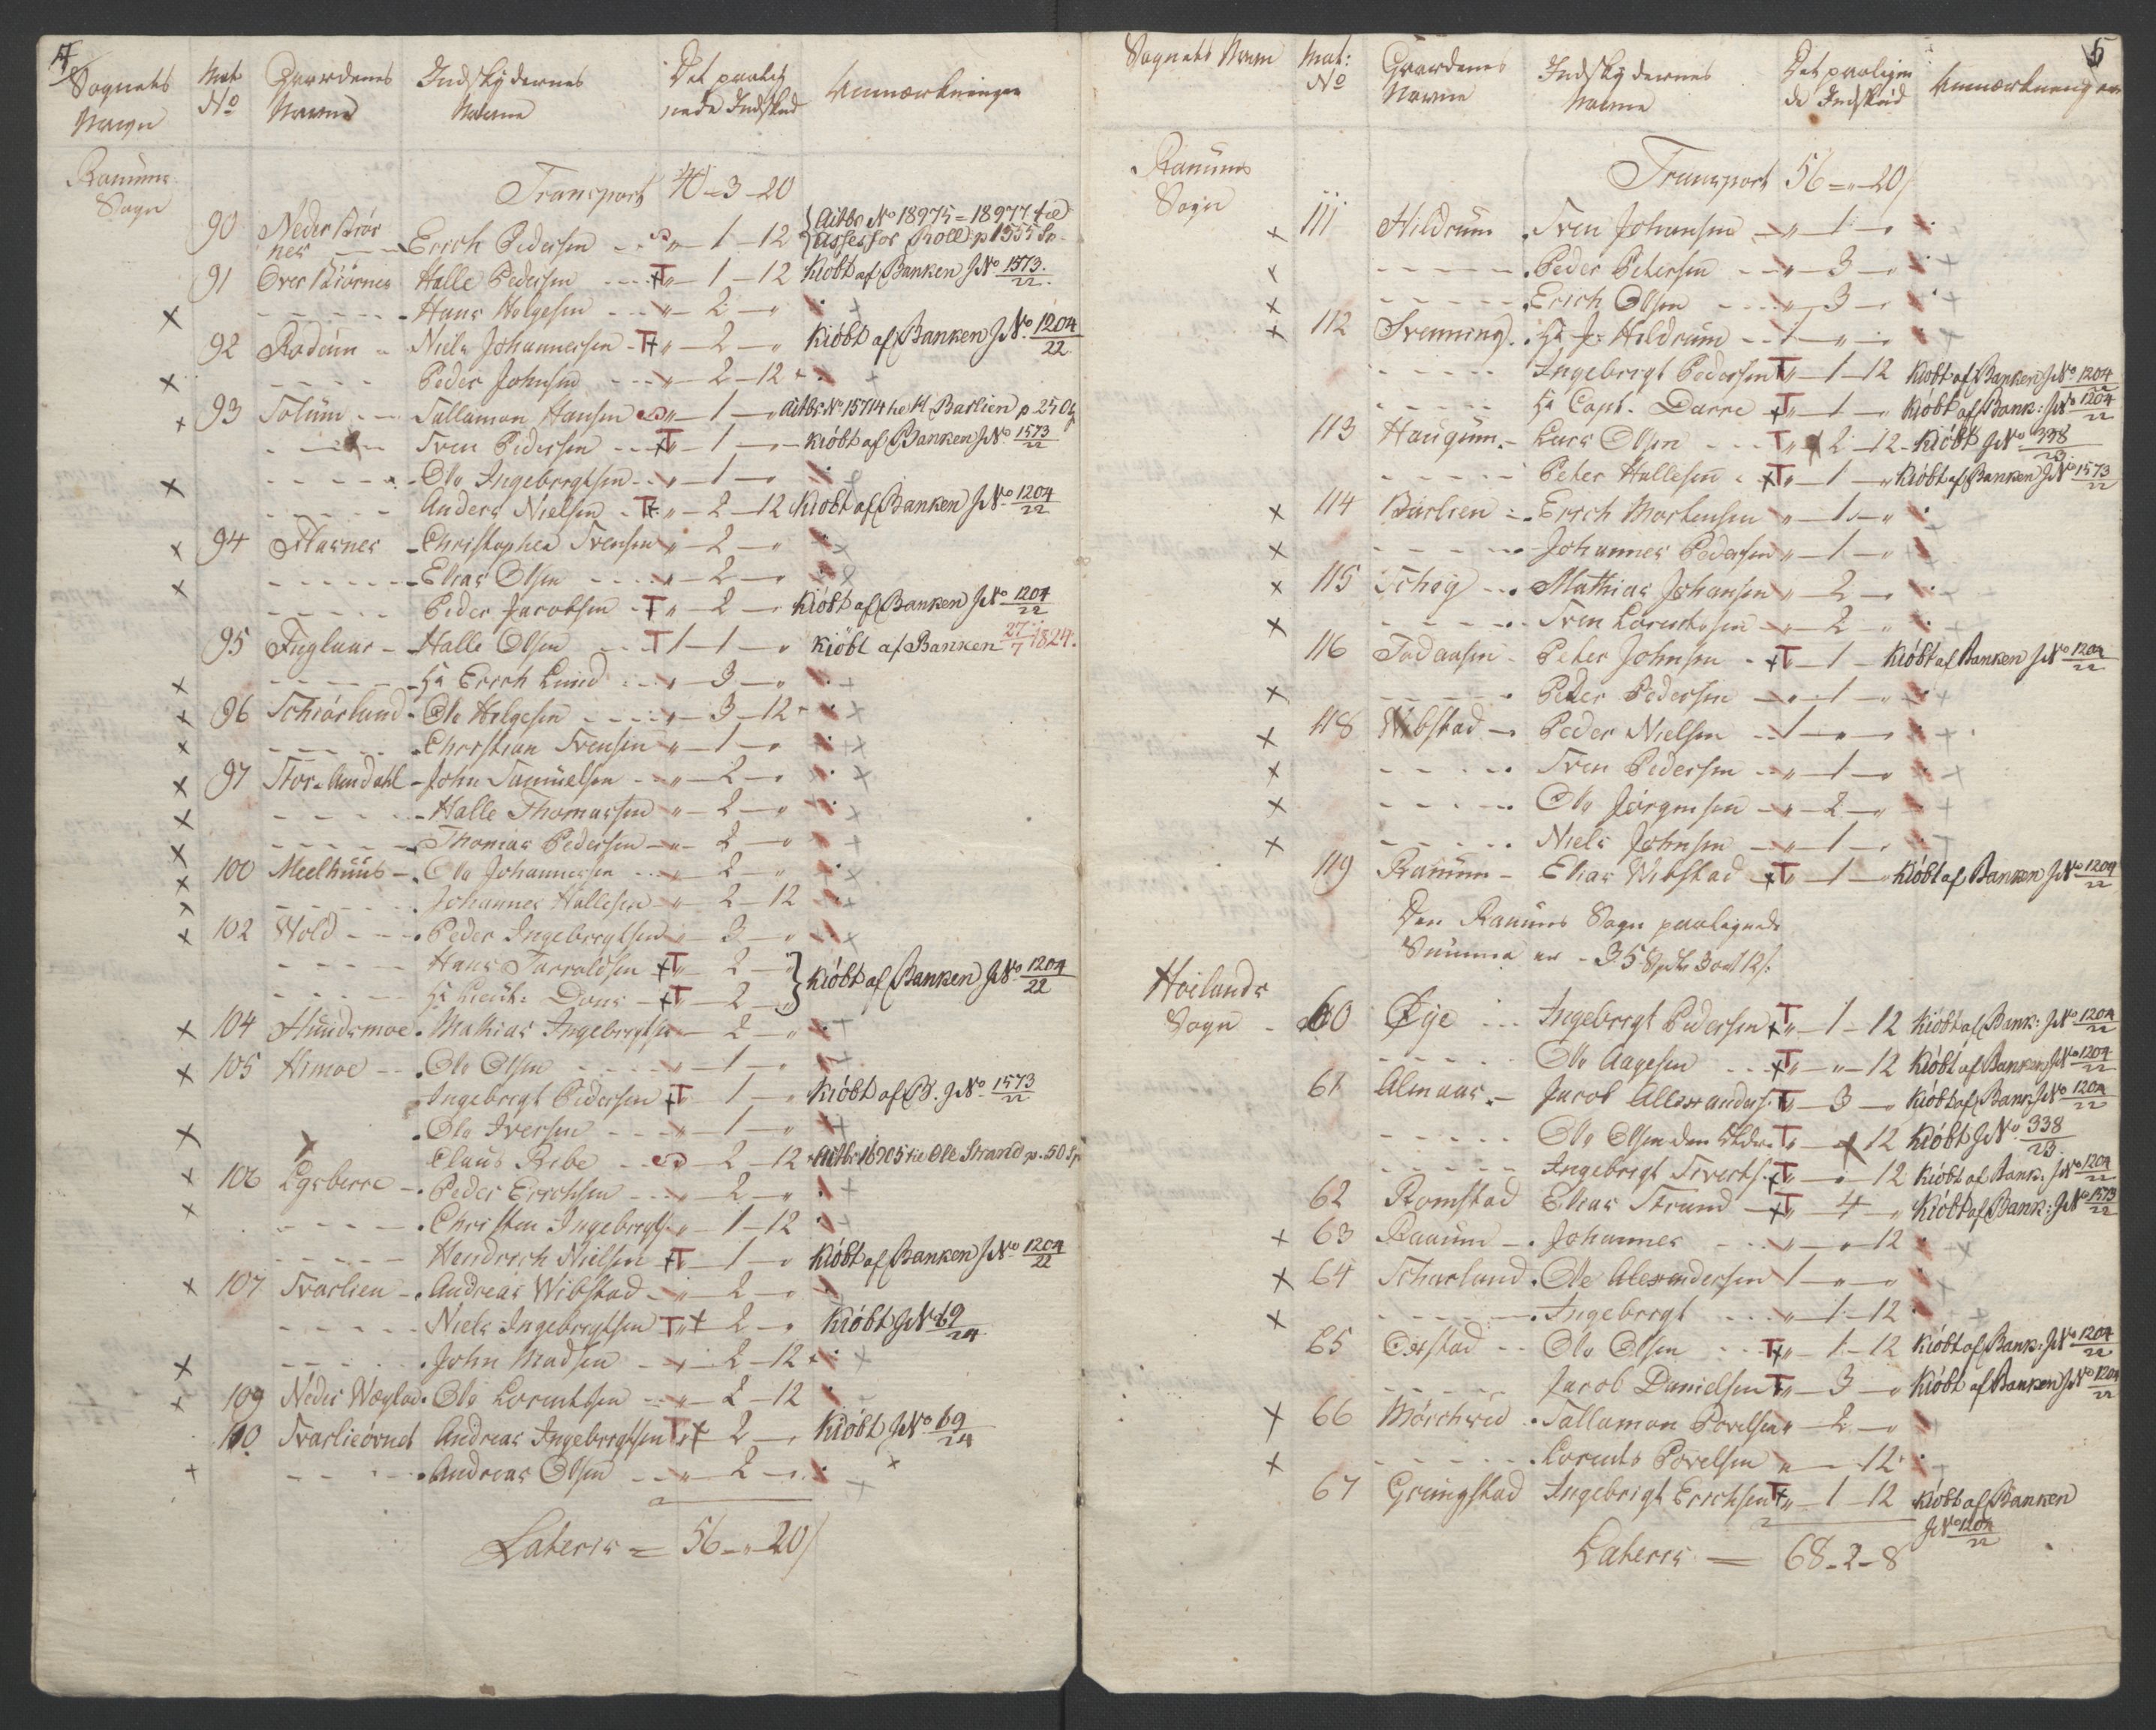 4
Sognets Navn | Mat No | Gaardenes Navne | Indskydernes Navne | Det paalignede Indskud | Anmærkninger
Ranums Sogn
Transport 40-3-20
90 Neder Biørnes - Erich Pedersen - " - 1 - 12 Actbr No 18975 = 18977 til Assessor Roll p 1555 Sp.
91 Over Biørnes Halle Pedersen - T " - 1 - 12 Kiöbt af Banken J.No 1573/22
x - - - - Hans Helgesen - " - 2 - "
92 Rodum - Niels Johannesen - T " - 2 - " Kiöbt af Banken J.No 1204/22
x - - - - Peder Johnsen - " - 2 - 12
x 93 Solum - Tallamon Hansen " - 1 - " Actbr No 15714 p 25
- - - - Sven Pedersen - T " - 1 - " Kiöbt af Banken J.No 1573/22
x - - - - Ole Ingebrigtsen - " - 1 - "
- - - - Anders Nielsen - T " - 2 - 12 Kiöbt af Banken J.No 1204/22
x 94 Aasnes - Christopher Svensen " - 2 - "
x - - - - Elias Olsen - " - 2 - "
- - - - Peder Jacobsen - T " - 2 - " Kiöbt af Banken J.No 1204/22
95 Fuglaar - Halle Olsen - T 1 - 1 - " Kiöbt af Banken 27/7 1824.
x - - - - Hr Erich Lund - " - 3 - "
x 96 Schiørland - Ole Helgesen - " - 3 - 12
x - - - - Christian Svensen " - 1 - "
x 97 Stor-Amdahl - John Samuelsen - " - 2 - "
x - - - - Halle Thomassen " - 2 - "
x - - - - Thomas Pedersen - " - 2 - "
x 100 Meelhuus - Ole Johannesen - " - 2 - "
x - - - - Johannes Hallesen - " - 2 - 12
x 102 Wold - - Peder Ingebrigtsen " - 3 - "
- - - - Hans Tarraldsen T " - 2 - " } Kiöbt af Banken J.No 1204/22
- - - - Hr Lieut: Dons - T " - 2 - "
x 104 Hundsmoe - Mathias Ingebrigtsen " - 2 - "
x 105 Hemoe - - Ole Olsen - " - 1 - "
Ingebrigt Pedersen T " - 1 - " Kiöbt af B. J.No 1573/22
x Ole Iversen - " - 1 - "
Claus Ribe - " - 2 - 12 Actbr 16905 til Ole Strand p. 50 Sp
x 106 Egsberre - Peder Erichsen - " - 2 - "
x - - - - Christen Ingebrigts. " - 1 - 12
- - - - Hendrich Nielsen T " - 1 - " Kiöbt af Banken J.No 1204/22
x 107 Svarlien - Andreas Wibstad - " - 2 - "
- - - - Niels Ingebrigtsen T " - 2 - " Kiöbt J.No 69/24
x - - - - John Madsen - " - 2 - 12
x 109 Neder Wægtad - Ole Lorentsen " - 2 - 12
110 Svarlieövnet Andreas Ingebrigtsen T " - 2 - " Kiöbt J.No 69/24
x - - - - Andreas Olsen - " - 2 - "
Lateris = 56 - " - 20
5
Sognets Navn | Mat: No | Gaardenes Navne | Indskydernes Navne | Det paalignede Indskud | Anmærkninger
Ranums Sogn
Transport 56 = " - 20
x 111 Hildrum - Sven Johansen - " - 1 - "
x - - - - Peder Petersen - " - 3 - "
x - - - - Erich Olsen - " - 3 - "
x 112 Svenning - Hr J. Hildrum - 1 - " - "
- - - - Ingebrigt Pedersen T " - 1 - 12 Kiöbt af Banken J.No 1204/22
- - - - Hr Capt. Darre - T " - 1 - " Kiöbt af Bank: J.No 1204/22
113 Haugum - Lars Olsen - T " - 2 - 12 - Kiöbt J.No 338/23.
- - - - Peter Hallesen - T " - 1 - " Kiöbt af Banken J.No 1573/22
x 114 Barlien - Erich Mortensen " - 1 - "
x - - - - Johannes Pedersen " - 1 - "
x 115 Schog - - Mathias Johansen " - 2 - "
x - - - - Sven Lorentsen - " - 2 - "
116 Sodaasen - Peter Johnsen - T - 1 - Kiöbt af Banken J.No 1204/22
x - - - - Peder Pedersen - " - 1 - "
x 118 Wibstad - Peder Nielsen - 1 - " - "
x - - - - Sven Pedersen - " - 1 - "
x - - - - Ole Jørgensen - " - 2 - "
x - - - - Niels Johnsen - " - 1 - "
119 Ranum - Elias Wibstad - T " - 1 - " Kiöbt af Banken J.No 1204/22
Den Ranums Sogn paalignede
Summa er - 35 Spdr 3 ort 12 s.
Høilands Sogn
60 Øye - - Ingebrigt Pedersen T " - 1 - 12 Kiöbt af Bank: J.No 1204/22
- - - - Ole Aagesen - T " - " - 12 Kiöbt af Banken J.No 1204/22
61 Almaas - Jacob Allexanders. T " - 3 - " Kiöbt af Bank J.No 1204/22
- - - - Ole Olsen den Eldr. T " - " 12 Kiöbt J.No 338/23
- - - - Ingebrigt Siverts. T " - " - 12 Kiöbt af Bank: J.No 1204/22
62 Romstad Elias Strand - T " - 4 - " Kiöbt af Bank: J.No 1573/22
x 63 Raaum - Johannes - " - " - 12
x 64 Scharland - Ole Alexandersen 1 - " - "
x - - - - Ingebrigt - " - 1 - 12
65 Oerstad - - Ole Olsen - T " - 1 - 12 Kiöbt af Bank: J.No 1204/22
- - - - Jacob Danielsen T " - 3 - " Kiöbt af Banken J.No 1204/22
x 66 Mörchwed - Tallamon Povelsen " - 2 - "
x - - - - Lorents Povelsen " - " - 12
67 Grungstad Ingebrigt Erichsen T " - 1 - 12 Kiöbt af Banken J.No 1204/22
Lateris = 68 - 2 - 8